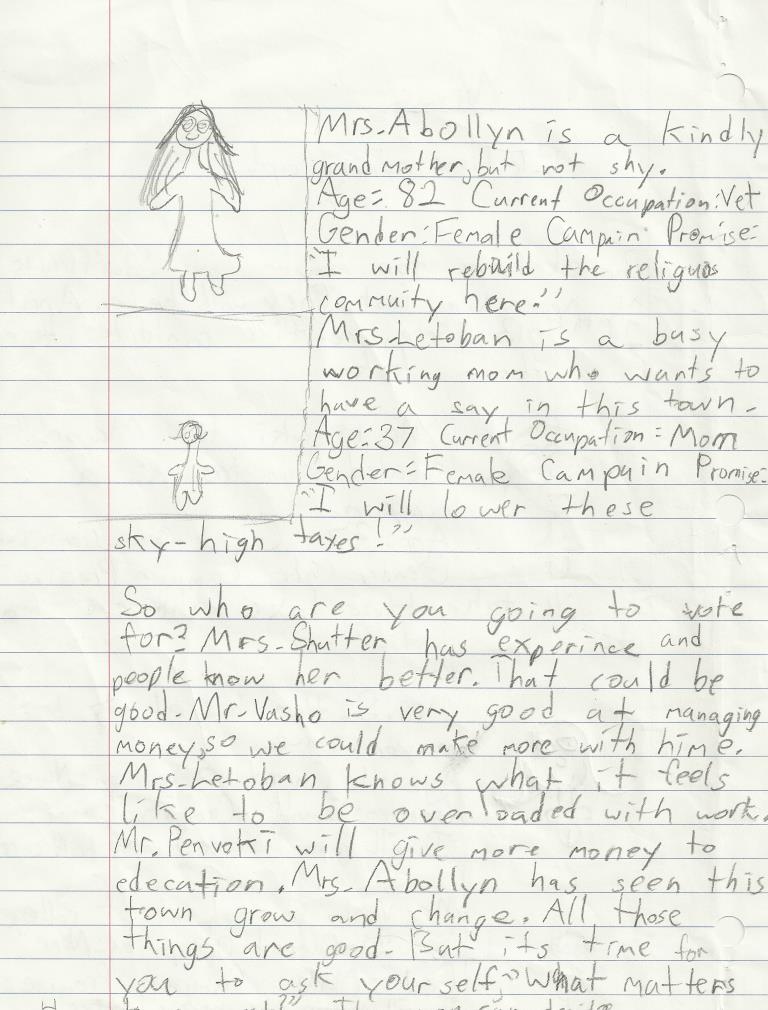 Mrs. Abollyn is a kindly
grandmother, but not shy.
Age: 82 Current Occupation: Vet
Gender: Female Campain Promise:
"I will rebuild the religuos
commuity here."
Mrs. Letoban is a busy
working mom who wants to
have a say in this town.
Age: 37 Current Occupation: Mom
Gender: Female Campain Promise:
"I will lower these
sky-high taxes!"
So who are you going to vote
for? Mrs. Shutter has experince and
people know her better. That could be
good. Mr. Vasho is very good at managing
money, so we could make more with hime.
Mrs. Letoban knows what it feels
like to be overloaded with work.
Mr. Penvoki will give more money to
edecation. Mrs. Abollyn has seen this
town grow and change. All those
things are good. But its time for
you to ask yourself, "What matters